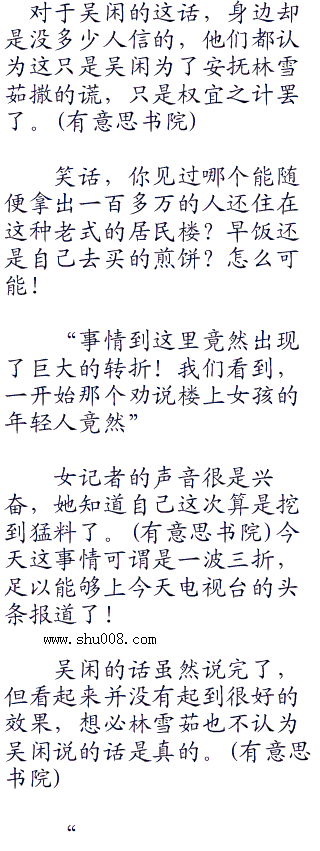 对于吴闲的这话，身边却
是没多少人信的，他们都认
为这只是吴闲为了安抚林雪
茹撒的谎，只是权宜之计罢
了。(有意思书院)
笑话，你见过哪个能随
便拿出一百多万的人还住在
这种老式的居民楼？早饭还
是自己去买的煎饼？怎么可
能！
“事情到这里竟然出现
了巨大的转折！我们看到，
一开始那个劝说楼上女孩的
年轻人竟然”
女记者的声音很是兴
奋，她知道自己这次算是挖
到猛料了。(有意思书院)今
天这事情可谓是一波三折，
足以能够上今天电视台的头
条报道了！
www.shu008.com
吴闲的话虽然说完了，
但看起来并没有起到很好的
效果，想必林雪茹也不认为
吴闲说的话是真的。(有意思
书院)
“